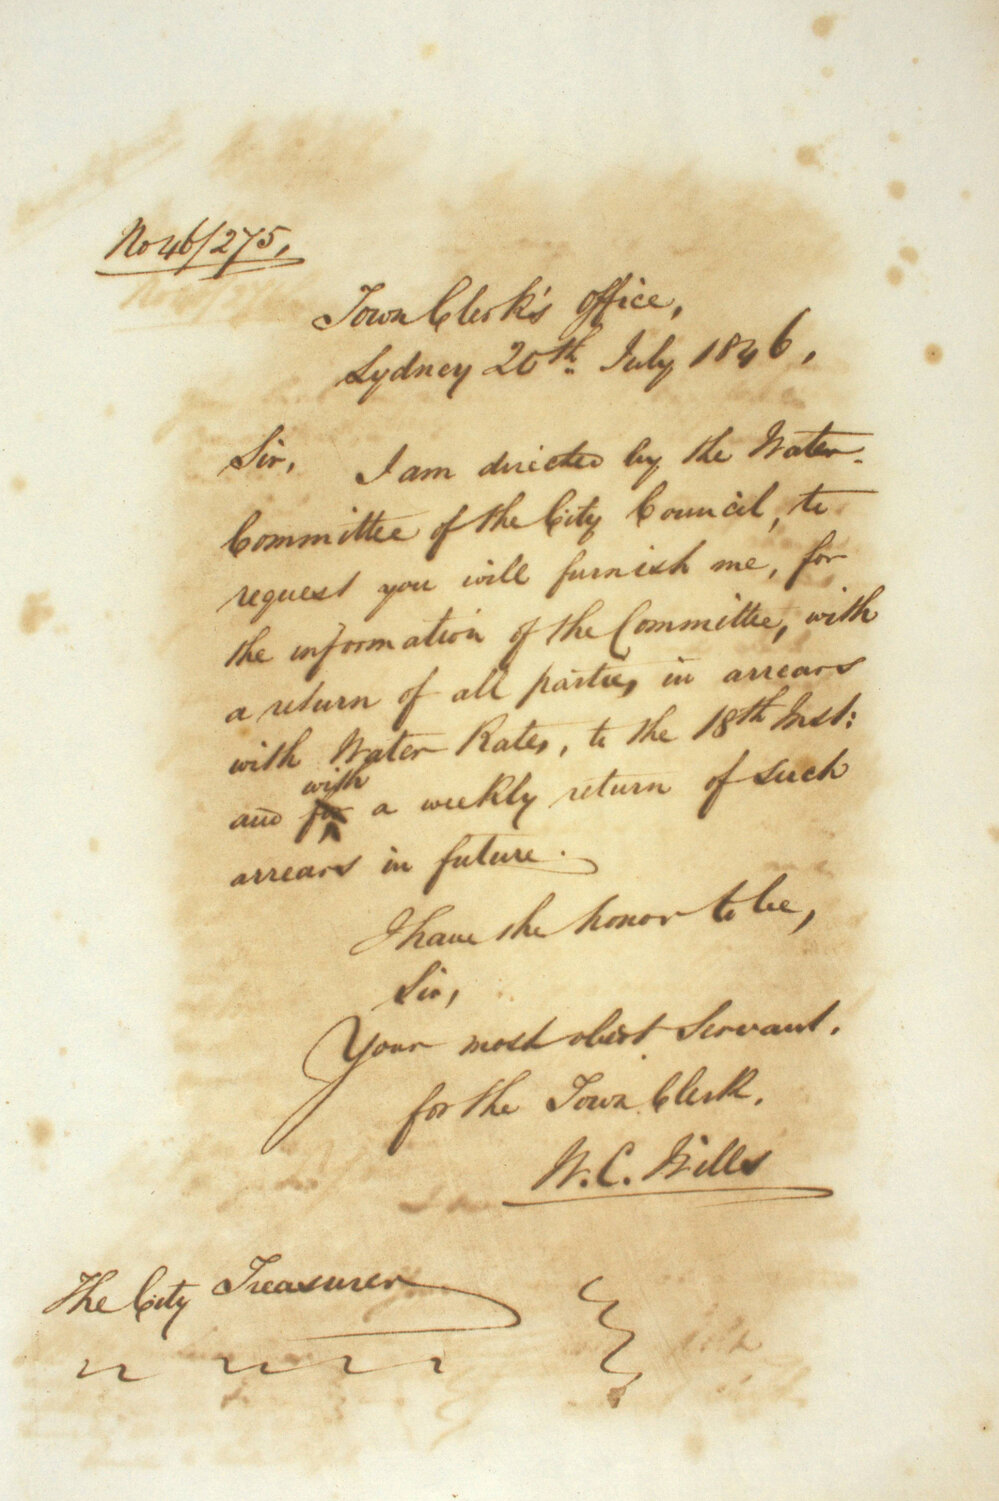 No 46/275.
Town Clerk's Office,
Sydney 20th July 1846.
Sir, I am directed by the Water-
Committee of the City Council, to
request you will furnish me, for
the information of the Committee, with
a return of all parties in arrears
with Water Rates, to the 18th Inst:
with
and for a weekly return of such
arrears in future.
I have the honor to be,
Sir,
Your most obedt Servant.
for the Town Clerk.
W. C. Wills
The City Treasurer